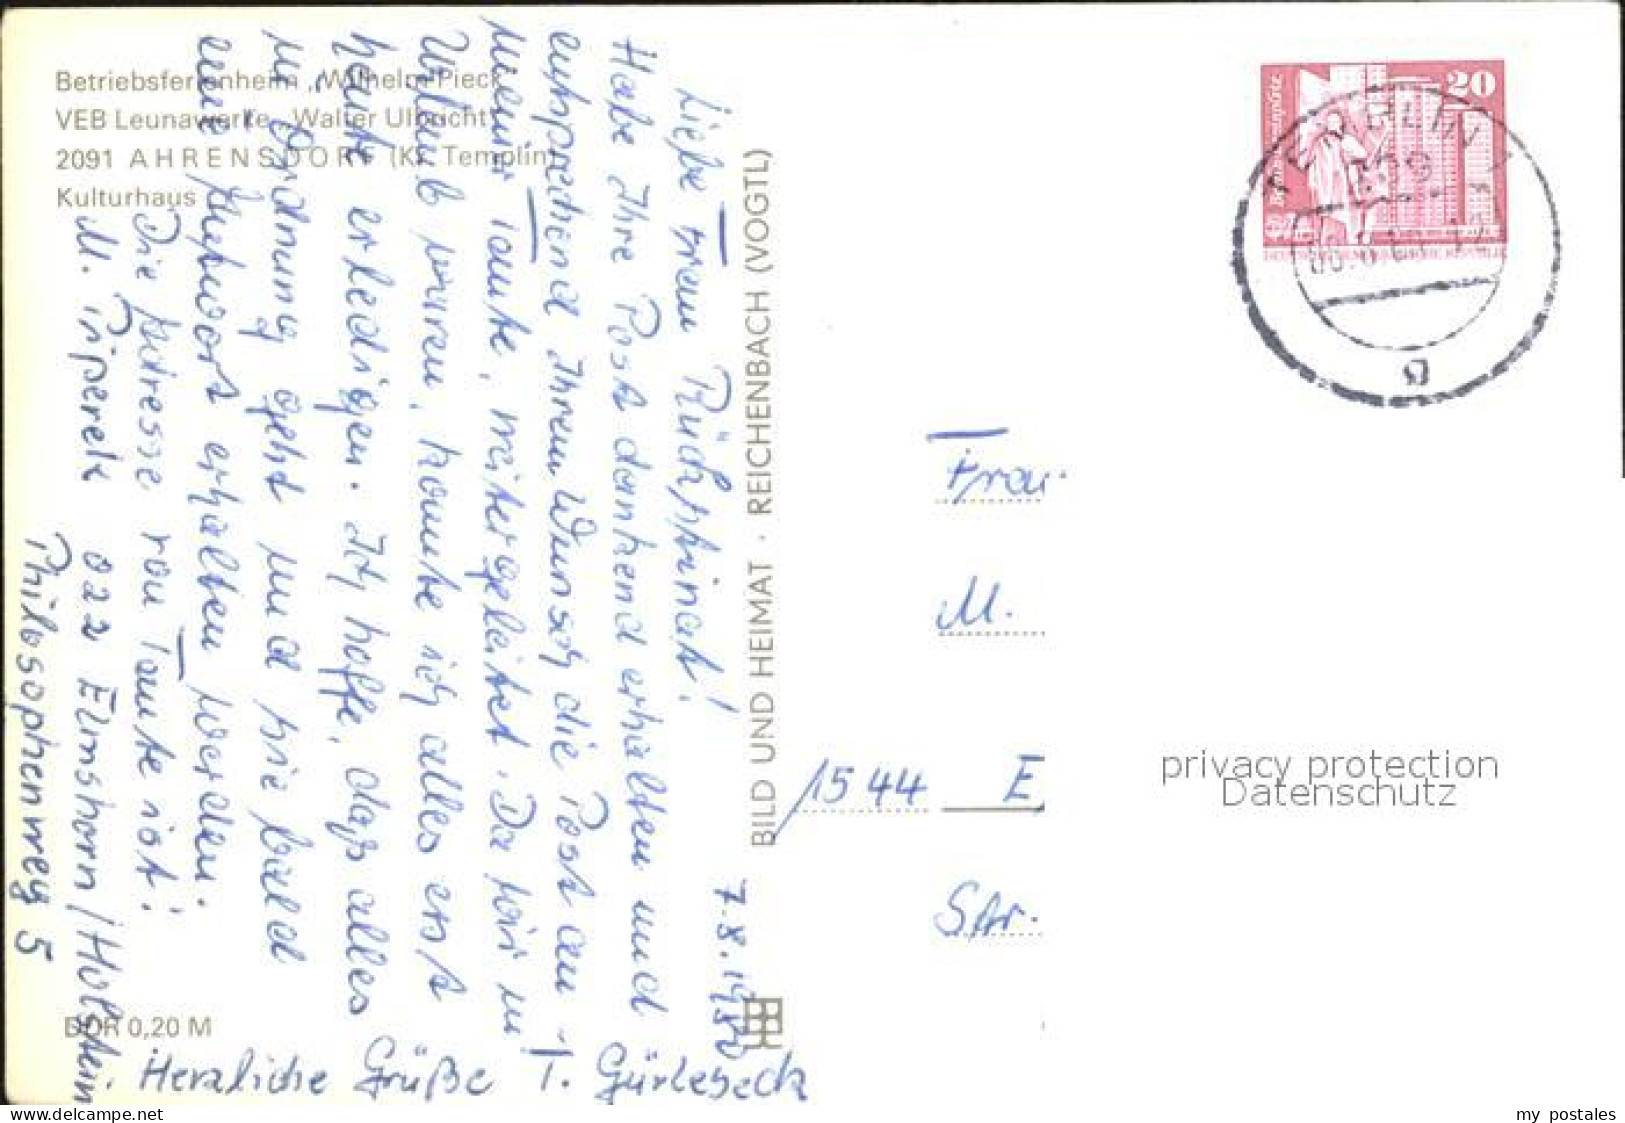 Betriebsferienheim „Wilhelm Pieck"
VEB Leunawerke „Walter Ulbricht"
2091 AHRENSDORF (Kr. Templin)
Kulturhaus
DDR 0,20 M
BILD UND HEIMAT · REICHENBACH (VOGTL)
7.8.1980
Liebe Frau
Habe Ihre Post dankend erhalten und
entsprechend Ihrem Wunsch die Post an
meine Tante, weitergeleitet. Da wir in
Urlaub waren, konnte ich alles erst
heute erledigen. Ich hoffe, daß alles
in Ordnung geht und Sie bald
eine Antwort erhalten werden.
Die Adresse von Tante ist:
M. 022 Elmshorn/Holstein
Philosophenweg 5
Herzliche Grüße T. Gürlebeck
20
Frau
M.
1544 E
Str.
privacy protection
Datenschutz
my postales